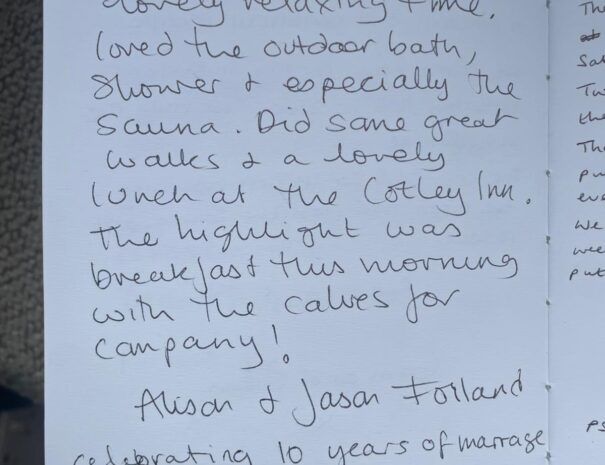 lovely relaxing time.
loved the outdoor bath,
Shower & especially the
Sauna. Did some great
walks & a lovely
lunch at the Cotley Inn.
The highlight was
breakfast this morning
with the calves for
company!
Alison & Jason Forland
celebrating 10 years of marrage
The
Sat
the
Th
eve
We
wee
put
PS